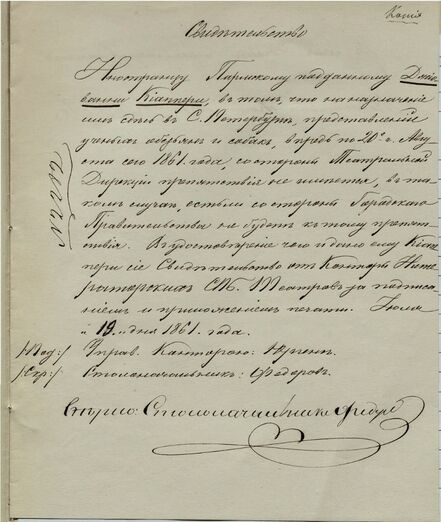 Копія
Свидѣтельство
Иностранцу Пармскому подданному Джіо-
ванни Кіаппери, въ томъ, что на назначеніе
имъ здѣсь въ С. Петербургѣ, представленій
ученыхъ обезьянъ и собакъ, впредь по 20е ч. Авгу-
ста сего 1861 года, со стороны Театральной
Дирекціи препятствія не имѣется, въ та-
комъ случаѣ, если со стороны Городскаго
Правительства не будетъ къ тому препят-
ствія. Въ удостовѣреніе чего и дано ему Кіап-
пери сіе Свидѣтельство отъ Конторы Импе-
раторскихъ СПб. Театровъ за подписа-
ніемъ и приложеніемъ печати. Іюля
19 дня 1861 года.
/:Под:/ Управ. Конторою: Юргенсъ.
/:Скр:/ Столоначальникъ: Федоровъ.
Вѣрно: Столоначальникъ Федоровъ